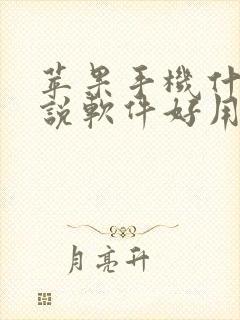 苹果手機什
說軟件好用
月亮升